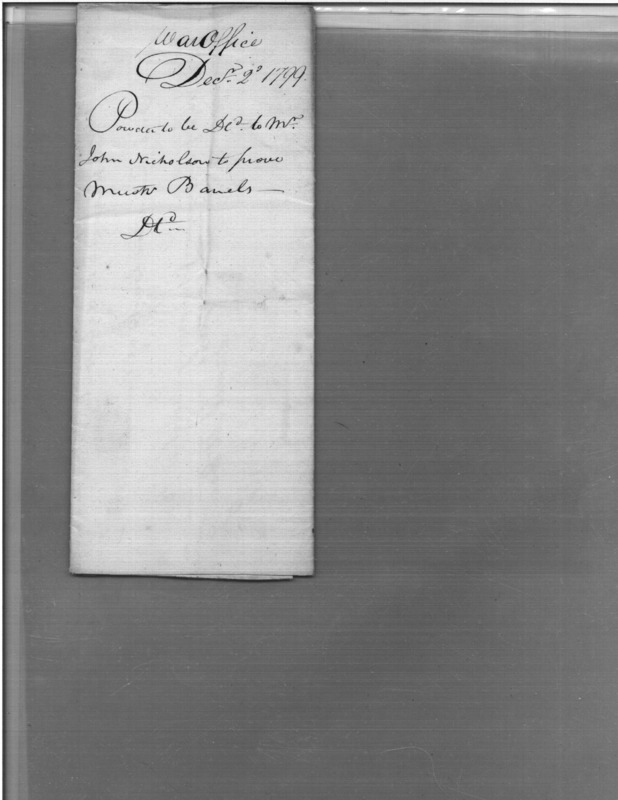 War Office
Decr. 2d 1799.
Powder to be Dd. to Mr.
John Nicholson to prove
Muskt Barrels —
Dd.